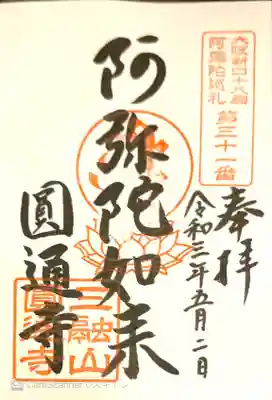 大阪新四十八願
阿弥陀巡礼
第三十一番
奉拝
令和三年五月二日
阿弥陀如来
圓通寺
三融山
圓通寺
CamScanner でスキャン